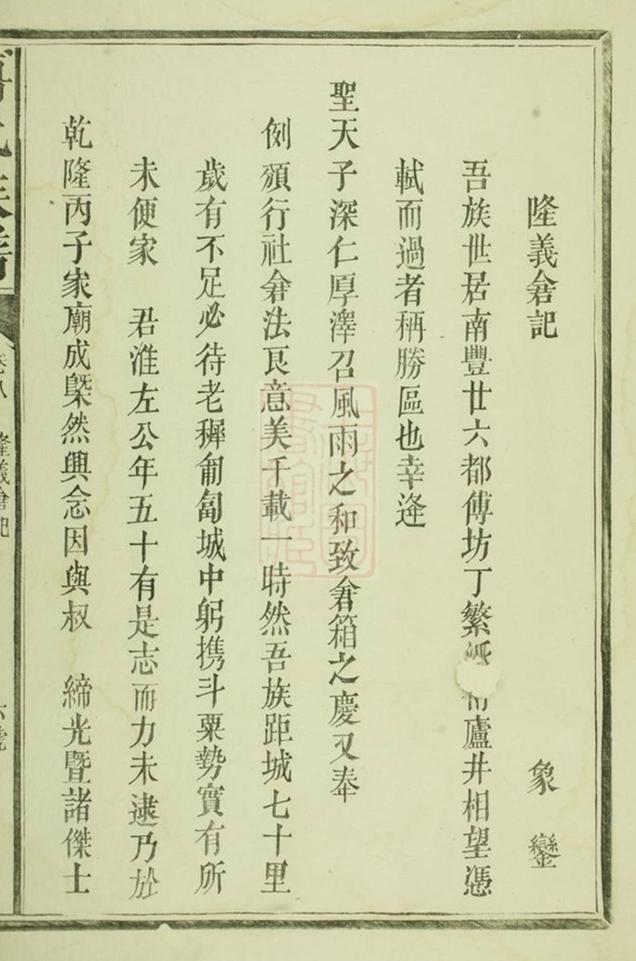 隆義倉記
象鑾
吾族世居南豐廿六都傅坊丁繁 廬井相望憑
軾而過者稱勝區也幸逢
聖天子深仁厚澤召風雨之和致倉箱之慶又奉
例頒行社倉法良意美千載一時然吾族距城七十里
歲有不足必待老穉匍匐城中躬攜斗粟勢實有所
未便家 君淮左公年五十有是志而力未逮乃於
乾隆丙子家廟成槩然興念因與叔 締光暨諸傑士
卷八 隆義倉記